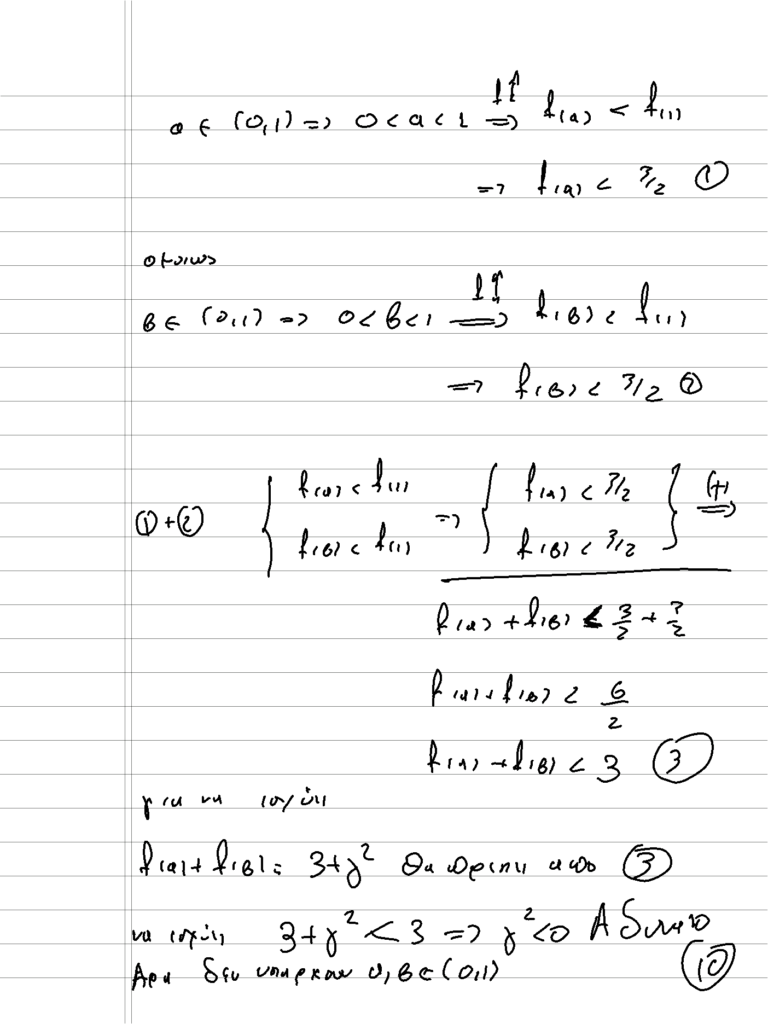 α ∈ (0,1) => 0 < α < 1 =f↑=> f(α) < f(1)
=> f(α) < 3/2 ①
ομοιως
β ∈ (0,1) => 0 < β < 1 =f↑=> f(β) < f(1)
=> f(β) < 3/2 ②
①+② { f(α) < f(1) => { f(α) < 3/2 } (+) =>
f(β) < f(1) f(β) < 3/2
f(α) + f(β) < 3/2 + 3/2
f(α) + f(β) < 6/2
f(α) + f(β) < 3 ③
για να ισχύει
f(α) + f(β) = 3+γ² θα πρεπει απο ③
να ισχύει 3+γ² < 3 => γ² < 0 Αδυνατο
Αρα δεν υπαρχουν α,β ∈ (0,1) ⑩